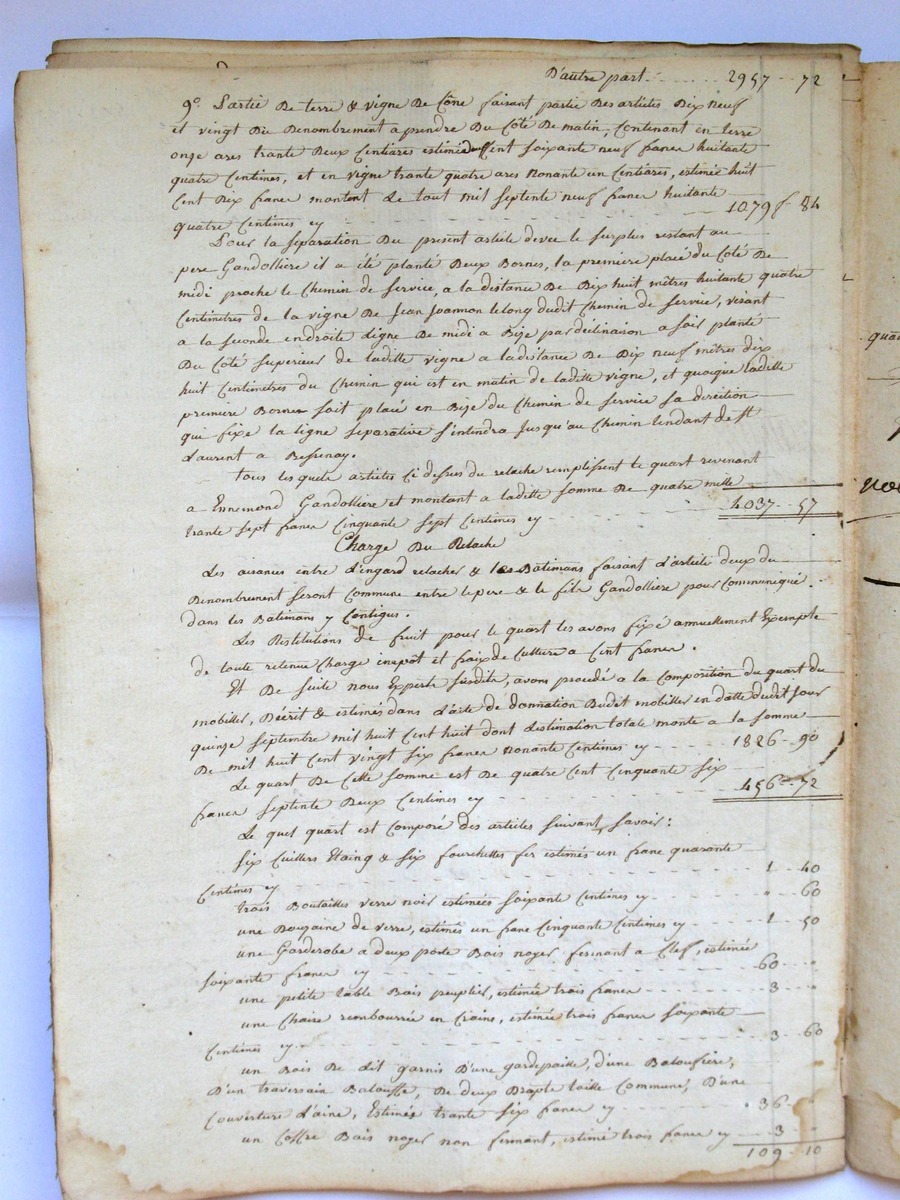 D'autre part 2957 - 72
9° Partie De terre & vigne De Cône faisant partie Des articles Dix neuf
et vingt Du Denombrement a prendre Du Côté De matin, Contenant en terre
onze ares trante Deux Centiares estimée Cent soixante neuf francs huitante
quatre Centimes, et en vigne trante quatre ares Nonante un Centiares, estimée huit
Cent Dix francs montent Le tout mil septente neuf francs huitante
quatre Centimes cy 1079 f - 84
Pour la séparation Du present article d'avec le surplus restant au
pere Gandollière il a été planté Deux Bornes, la première placé du Côté De
midi proche le Chemin de service, a la distance De Dix huit mêtres huitante quatre
Centimetres de la vigne De Jean Joannon le long dudit Chemin de service, visant
a la seconde en droite ligne De midi a Bize pas declinaison a soir planté
Du Côté superieur de laditte vigne a la distance De Dix neuf mêtres dix
huit Centimetres du Chemin qui est en matin de laditte vigne, et quoique laditte
premiere Borne soit placé en Bize du Chemin de service sa direction
qui fixe la ligne separative s'entendra Jusqu'au Chemin tendant de St
Laurent a Bressenay.
Tous lesquels articles Ci dessus du relache remplissent le quart revenant
a Ennemond Gandollière et montant a laditte somme De quatre mille
trante sept francs Cinquante sept Centimes cy 4037 - 57
Charge Du Relache
Les aisances entre d'ingard relachés & les Batimans faisant l'article deux du
Denombrement seront Commune entre le pere & le fils Gandollière pour Communiqué
dans les Batimans y Contigus.
Les Restitutions de fruit pour le quart les avons fixé annuellement Exempte
de toute retenue Charge inepôt et fraix de Culture a Cent francs.
Et De suite nous Experts susdits, avons procédé a la Composition du quart du
mobilier, Décrit & estimés dans l'acte de donnation Dudit mobilier en datte dudit jour
quinze septembre mil huit Cent huit dont l'estimation totale monte a la somme
De mil huit Cent vingt six francs nonante Centimes cy 1826 - 90
Le quart De Cette somme est De quatre Cent Cinquante six
francs septente Deux Centimes cy 456 - 72
Le quel quart est Composé des articles suivant, savoir :
six Cuillers Etaing & six fourchettes fer estimés un franc quarante
Centimes cy 1 40
trois Boutailles verre noir estimées soixante Centimes cy " 60
une Douzaine de verre, estimés un franc Cinquante Centimes cy 1 50
une Garderobe a deux porte Bois noyer fermant a Clef, estimée
soixante francs cy 60 "
une petite table Bois peuplier, estimée trois francs 3 "
une Chaire rembourrée en Crains, estimée trois francs soixante
Centimes cy 3 60
un Bois De lit garnis D'une gardepaille, d'une Baloufière,
D'un traversain Balouffe, De deux Draps toille Commune, D'une
Couverture Laine, Estimés trante six francs cy 36 "
un Coffre Bois noyer non fermant, estimé trois francs cy 3 "
109 - 10